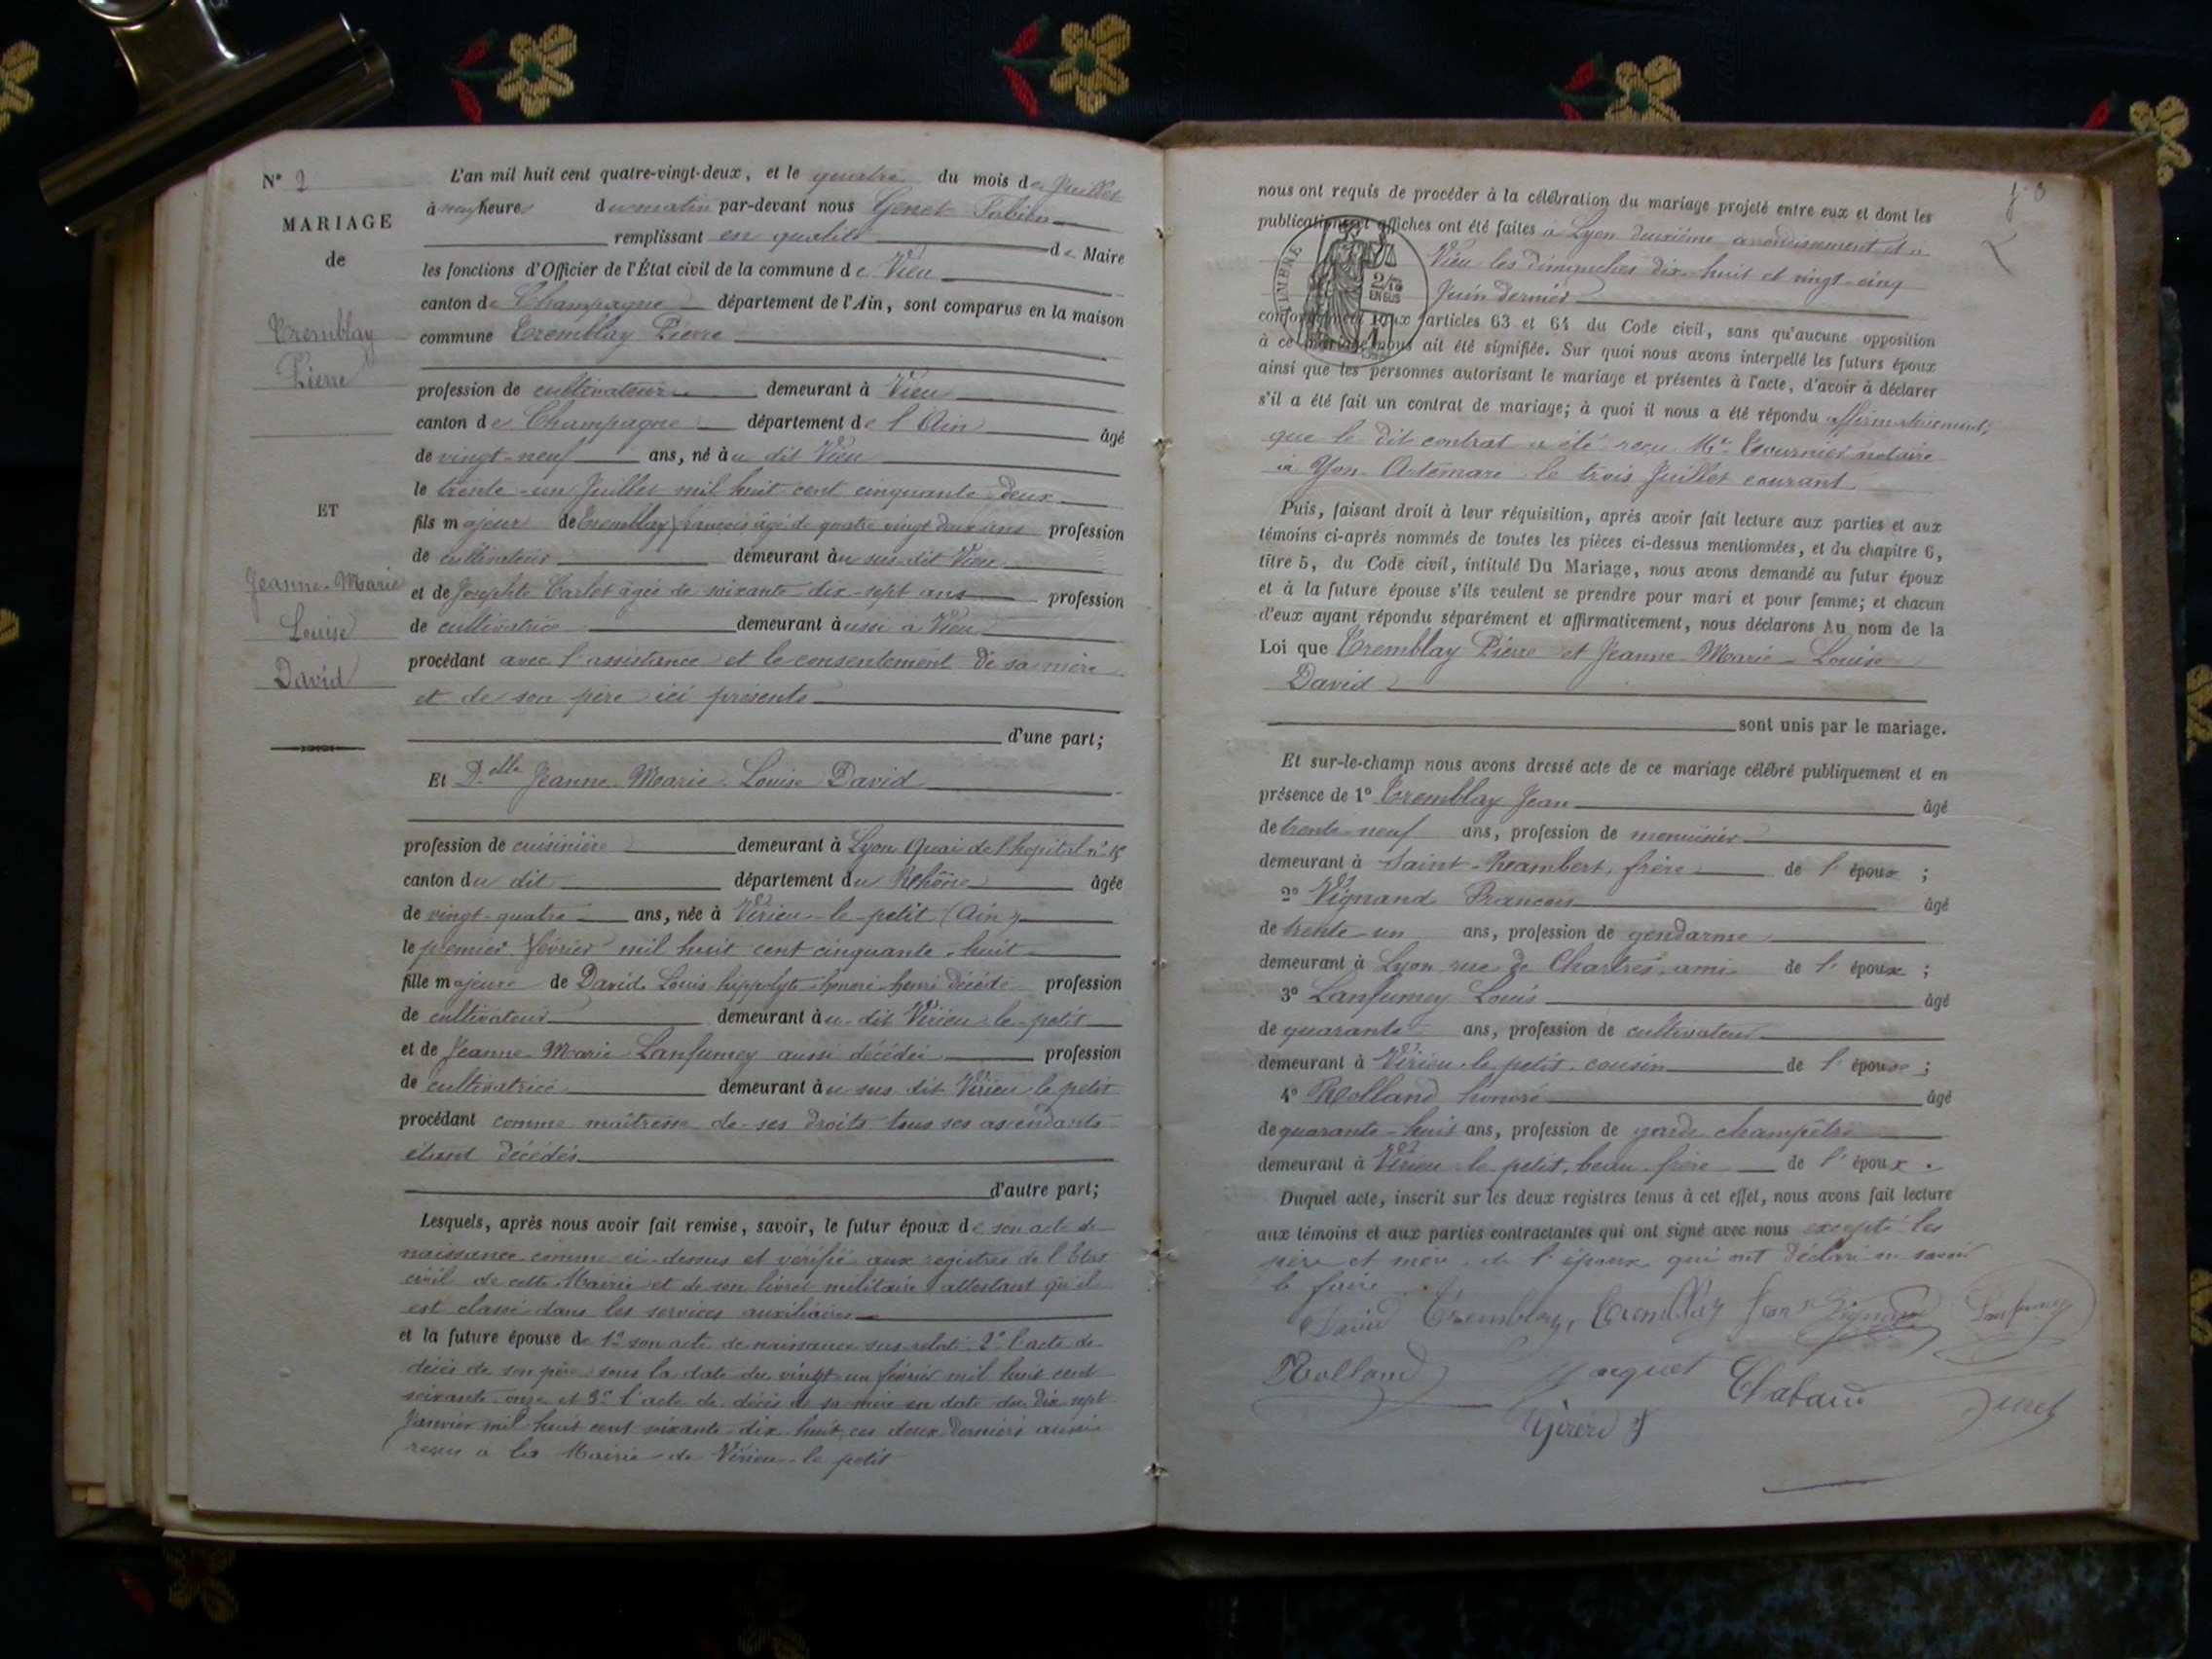 N° 2
MARIAGE
de
Tremblay
Pierre
ET
Jeanne-Marie
Louise
David
L'an mil huit cent quatre-vingt-deux, et le quatre du mois de Juillet
à neuf heures du matin par-devant nous Genet Fabien
remplissant en qualité de Maire
les fonctions d'Officier de l'État civil de la commune de Vieu
canton de Champagne département de l'Ain, sont comparus en la maison
commune Tremblay Pierre
profession de cultivateur demeurant à Vieu
canton de Champagne département de l'Ain âgé
de vingt-neuf ans, né àu dit Vieu
le trente-un Juillet mil huit cent cinquante-deux
fils majeur de Tremblay françois âgé de quatre vingt deux ans profession
de cultivateur demeurant àu sus-dit Vieu
et de Josephte Carlet âgée de soixante-dix-sept ans profession
de cultivatrice demeurant àussi à Vieu
procédant avec l'assistance et le consentement de sa mère
et de son père ici présents
d'une part;
Et D.elle Jeanne-Marie-Louise David
profession de cuisinière demeurant à Lyon Quai de l'hopital n°
canton du dit département du Rhône âgée
de vingt-quatre ans, née à Virieu-le-petit (Ain)
le premier février mil huit cent cinquante-huit
fille majeure de David Louis hippolyte honoré henri décédé profession
de cultivateur demeurant àu dit Virieu-le-petit
et de Jeanne-Marie Lanfumey aussi décédée profession
de cultivatrice demeurant àu sus dit Virieu le petit
procédant comme maîtresse de ses droits tous ses ascendants
étant décédés
d'autre part;
Lesquels, après nous avoir fait remise, savoir, le futur époux de son acte de
naissance comme ci-dessus et vérifié aux registres de l'Etat
civil de cette Mairie et de son livret militaire attestant qu'il
est classé dans les services auxiliaires
et la future épouse de 1° son acte de naissance sus relaté 2° l'acte de
décès de son père sous la date du vingt un février mil huit cent
soixante onze et 3° l'acte de décès de sa mère en date du dix sept
Janvier mil huit cent soixante dix huit, ces deux derniers aussi
reçus à la Mairie de Virieu-le petit
nous ont requis de procéder à la célébration du mariage projeté entre eux et dont les
publications et affiches ont été faites à Lyon deuxième arrondissement et à
Vieu les dimanches dix-huit et vingt-cinq
Juin dernier
TIMBRE
2/10
EN SUS
conformément aux articles 63 et 64 du Code civil, sans qu'aucune opposition
à ce mariage nous ait été signifiée. Sur quoi nous avons interpellé les futurs époux
ainsi que les personnes autorisant le mariage et présentes à l'acte, d'avoir à déclarer
s'il a été fait un contrat de mariage; à quoi il nous a été répondu affirmativement;
que le dit contrat a été reçu Me Tournier notaire
à Yon-Artemare le trois Juillet courant
Puis, faisant droit à leur réquisition, après avoir fait lecture aux parties et aux
témoins ci-après nommés de toutes les pièces ci-dessus mentionnées, et du chapitre 6,
titre 5, du Code civil, intitulé Du Mariage, nous avons demandé au futur époux
et à la future épouse s'ils veulent se prendre pour mari et pour femme; et chacun
d'eux ayant répondu séparément et affirmativement, nous déclarons Au nom de la
Loi que Tremblay Pierre et Jeanne-Marie-Louise
David
sont unis par le mariage.
Et sur-le-champ nous avons dressé acte de ce mariage célébré publiquement et en
présence de 1° Tremblay Jean âgé
de trente-neuf ans, profession de menuisier
demeurant à Saint-Rambert, frère de l'époux ;
2° Vignand François âgé
de trente-un ans, profession de gendarme
demeurant à Lyon rue de Chartres, ami de l'époux ;
3° Lanfumey Louis âgé
de quarante ans, profession de cultivateur
demeurant à Virieu-le petit, cousin de l'épouse ;
4° Rolland honoré âgé
de quarante-huit ans, profession de garde champêtre
demeurant à Virieu-le petit, beau-frère de l'époux.
Duquel acte, inscrit sur les deux registres tenus à cet effet, nous avons fait lecture
aux témoins et aux parties contractantes qui ont signé avec nous excepté les
père et mère de l'époux qui ont déclaré ne savoir
le faire
David Tremblay, Tremblay Jean Vignand Lanfumey
Rolland Chabaud Genet